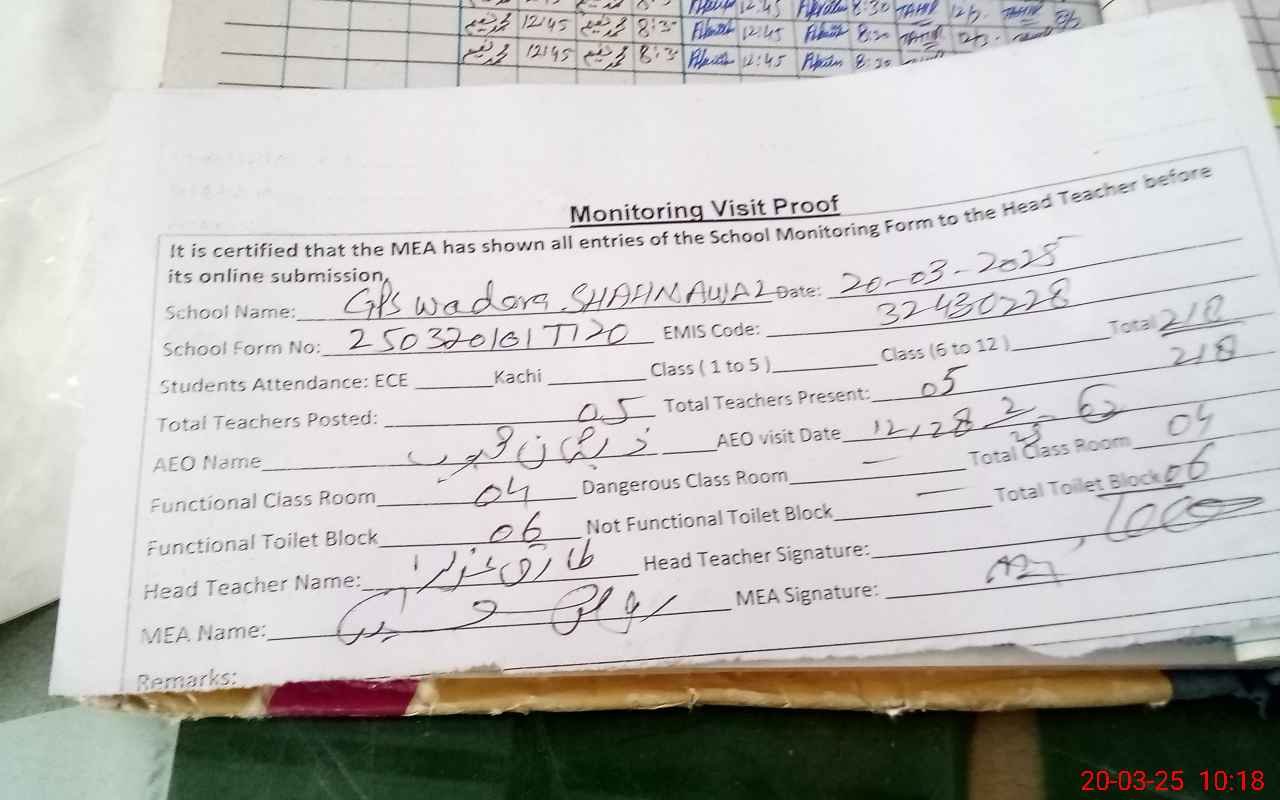 12:45 8:30 12:45 8:30 TAHIR 12/3.
محمد نعیم 12:45 محمد نعیم 8:30 12:45 8:30 TAHIR 12/3.
محمد نعیم 12:45 محمد نعیم 8:3 12:45 8:30
Monitoring Visit Proof
It is certified that the MEA has shown all entries of the School Monitoring Form to the Head Teacher before
its online submission.
School Name: GPS Wadora SHAHNAWAZ Date: 20-03-2025
School Form No: EMIS Code: 32430228
Students Attendance: ECE Kachi Class ( 1 to 5 ) Class (6 to 12 ) Total 218
218
Total Teachers Posted: 05 Total Teachers Present: 05
AEO Name AEO visit Date
Functional Class Room 04 Dangerous Class Room — Total Class Room 04
Functional Toilet Block 06 Not Functional Toilet Block — Total Toilet Block 06
Head Teacher Name: طارق Head Teacher Signature:
MEA Name: MEA Signature:
Remarks:
20-03-25 10:18